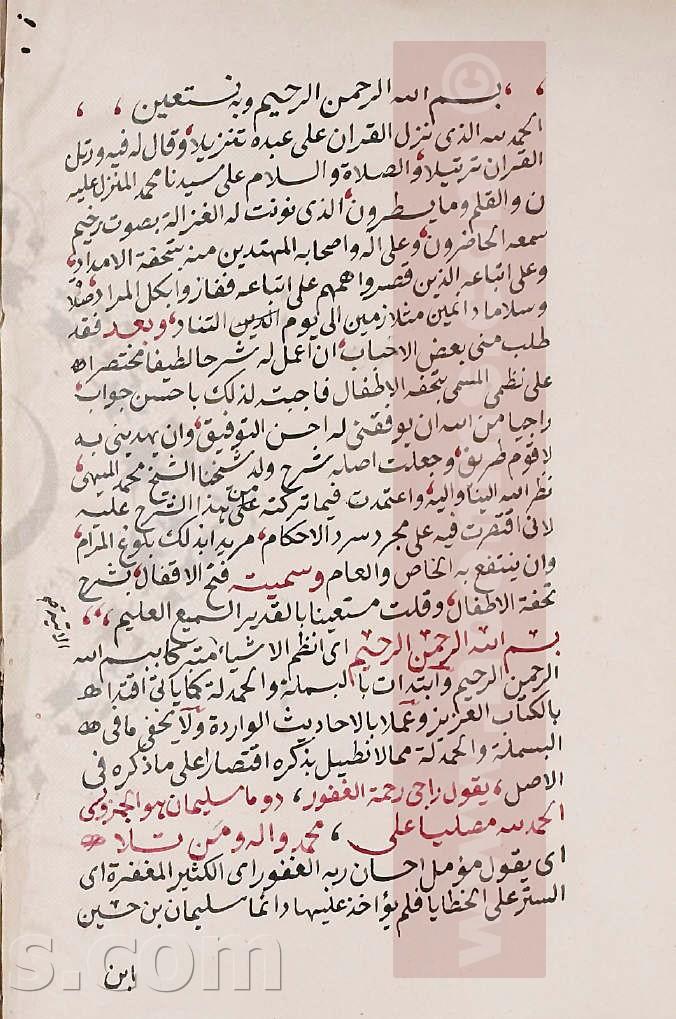 بسم الله الرحمن الرحيم وبه نستعين
الحمد لله الذى نزل القران على عبده تنزيلا وقال له فيه ورتل
القران ترتيلا والصلاة والسلام على سيدنا محمد المنزل عليه
ن والقلم وما يسطرون الذى نونت له الغزالة بصوت رخيم
سمعه الحاضرون وعلى اله واصحابه المهتدين منه بتحفة الامداد
وعلى اتباعه الذين قصروا هممهم على اتباعه ففازوا بكل المراد صلاة
وسلاما دائمين متلازمين الى يوم الدين التناد وبعد فقد
طلب منى بعض الاحباب ان اعمل له شرحا لطيفا مختصرا
على نظمى المسمى بتحفه الاطفال فاجبته لذلك باحسن جواب
راجيا من الله ان يوفقنى له احسن التوفيق وان يهدينى به
لاقوم طريق وجعلت اصله شرح ولد شيخنا الشيخ محمد الميهى
نظر الله الينا واليه واعتمدت فيما تركته من هذا الشرح عليه
لانى اقتصرت فيه على مجرد سرد الاحكام مريدا بذلك بلوغ المرام
وان ينتفع به الخاص والعام وسميته فتح الاقفال بشرح
تحفة الاطفال وقلت مستعينا بالقدير السميع العليم
بسم الله الرحمن الرحيم اى انظم الاشياء متبركا ببسم الله
الرحمن الرحيم وابتدات بالبسملة والحمدلة كما ياتى اقتدا
بالكتاب العزيز وعملا بالاحاديث الواردة ولا يخفى ما فى
البسملة والحمدلة مما لا نطيل بذكره اقتصارا على ما ذكره فى
الاصل يقول راجى رحمة الغفور دوما سليمان هو الجمزورى
الحمد لله مصليا على محمد واله ومن تلا
اى يقول مؤمل احسان ربه الغفور اى الكثير المغفرة اى
الستر على الخطايا فلم يؤاخذ عليها دائما سليمان بن حسين
ابن
s.com